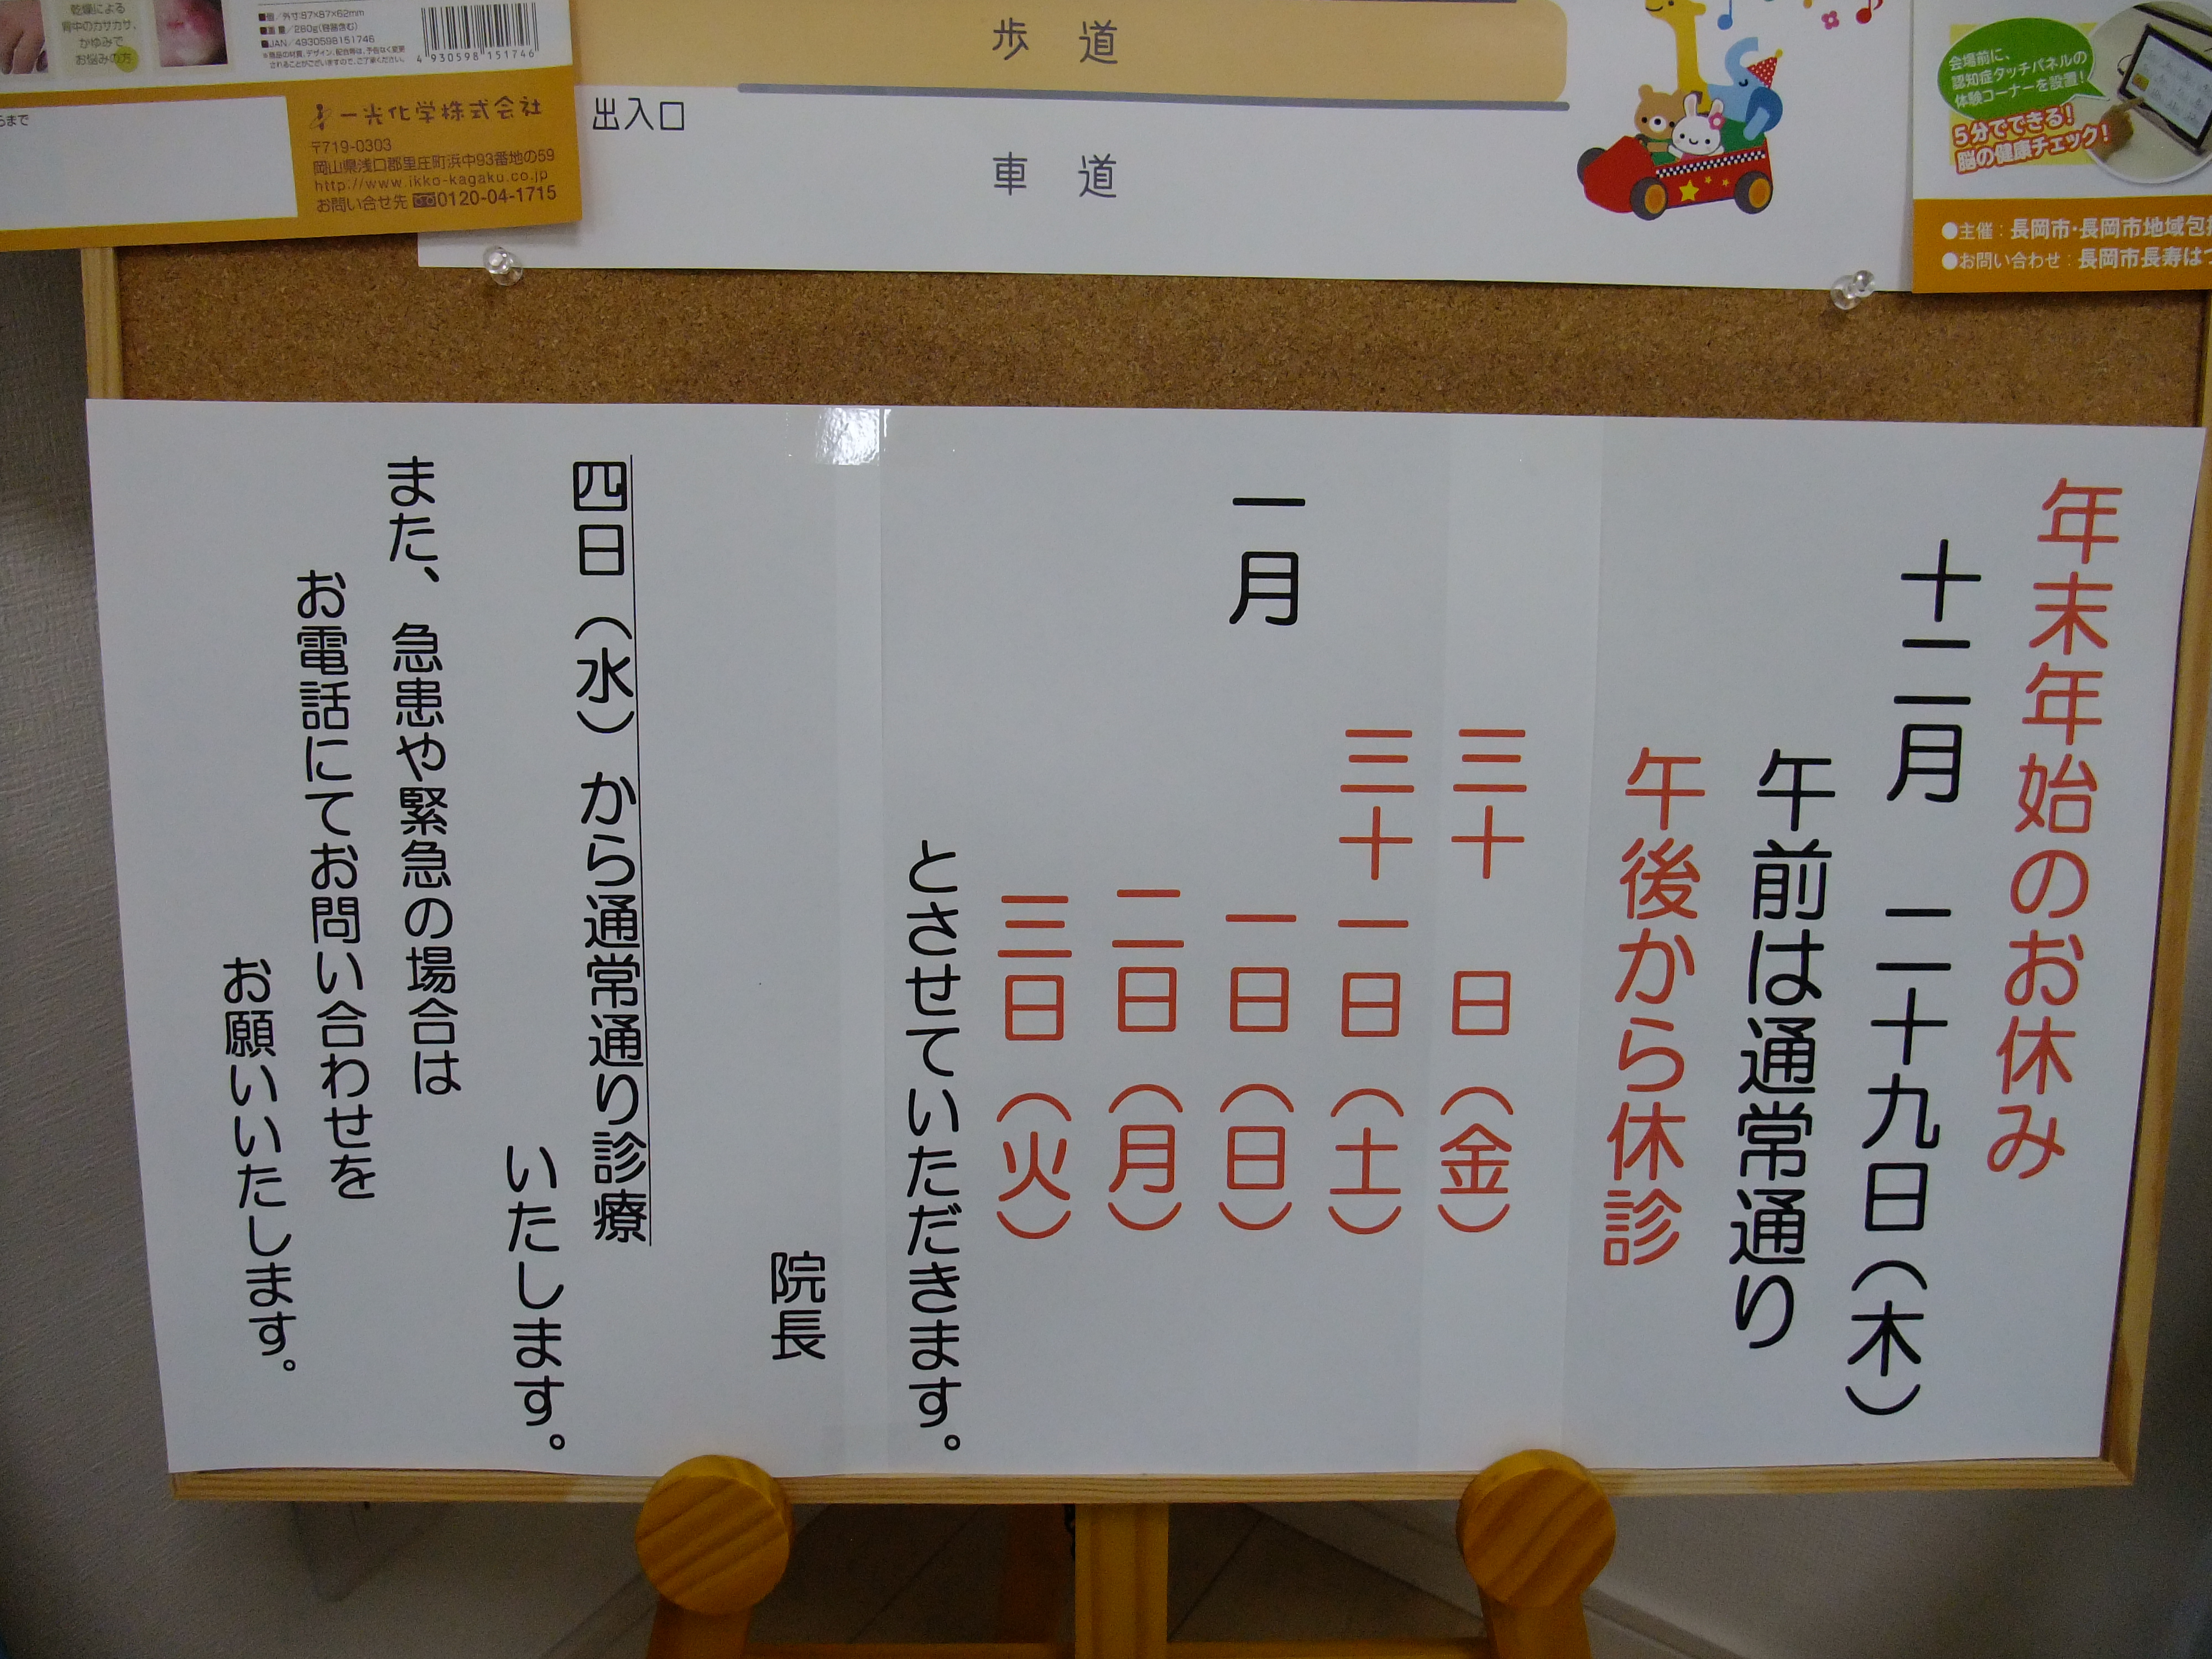 乾燥による
背中のカサカサ、
かゆみで
お悩みの方
■個／外寸:87×87×62mm
■重量／280g(容器含む)
■JAN／4930598151746
※商品の材質、デザイン、配合等は、予告なく変更
されることがございますので、ご了承ください。
4 930598 151746
らまで
一光化学株式会社
〒719-0303
岡山県浅口郡里庄町浜中93番地の59
http://www.ikko-kagaku.co.jp
お問い合せ先 0120-04-1715
歩道
出入口
車道
会場前に、
認知症タッチパネルの
体験コーナーを設置!
5分でできる!
脳の健康チェック!
●主催：長岡市・長岡市地域包
●お問い合わせ：長岡市長寿は
年末年始のお休み
十二月 二十九日（木）
午前は通常通り
午後から休診
三十 日（金）
三十一日（土）
一月 一日（日）
二日（月）
三日（火）
とさせていただきます。
院長
四日（水）から通常通り診療
いたします。
また、急患や緊急の場合は
お電話にてお問い合わせを
お願いいたします。